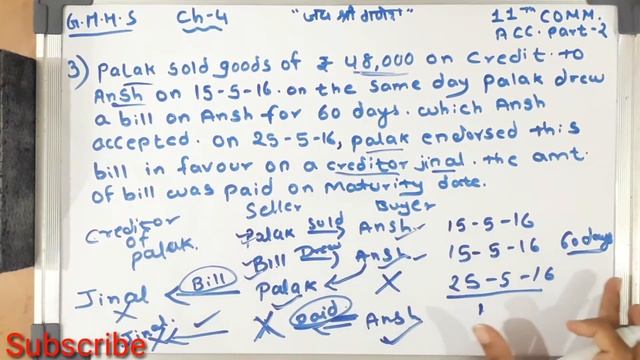 G.M.H.S Ch-4 "जय श्री गणेश" 11TH COMM.
ACC. Part-2
3) Palak sold goods of ₹ 48,000 on credit to
Ansh on 15-5-16. on the same day Palak drew
a bill on Ansh for 60 days. which Ansh
accepted. on 25-5-16, palak endorsed this
bill in favour on a creditor jinal. the amt.
of bill was paid on Maturity date.
Seller Buyer
Creditor of palak.
Palak Sold Ansh 15-5-16
Bill Drew Ansh 15-5-16 60 days
Jinal Bill Palak X 25-5-16
X Jinal. X paid Ansh
Subscribe